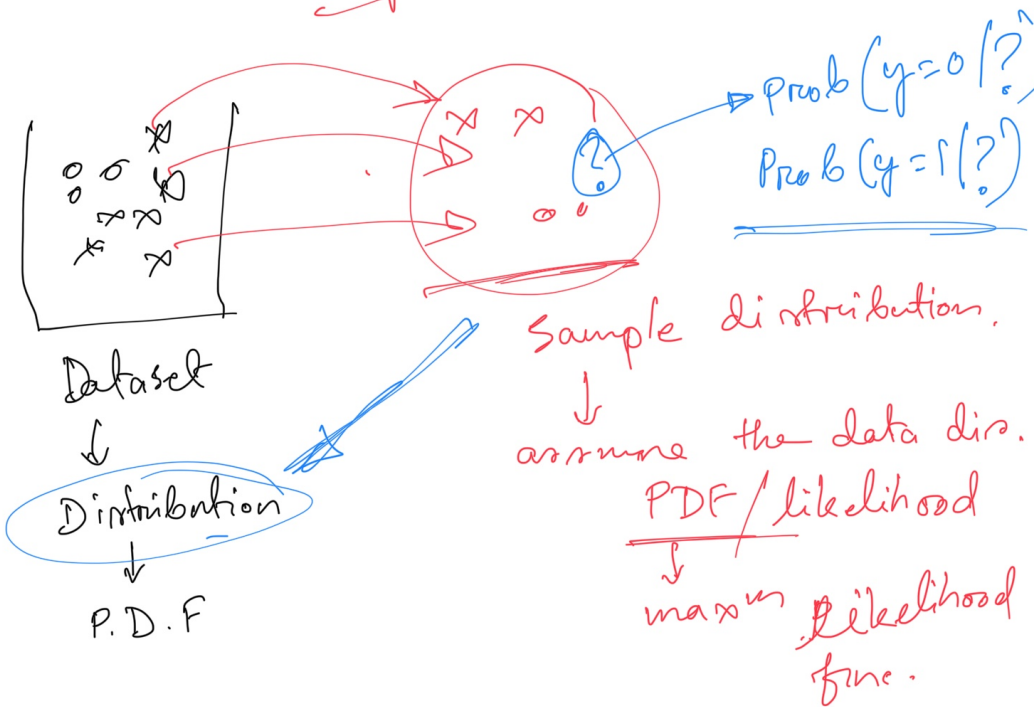 Prob (y=0 | ?)
Prob (y=1 | ?)
?
Dataset
Distribution
P.D.F
Sample distribution.
assume the data dis.
PDF / likelihood
maxᵐ Likelihood
func.